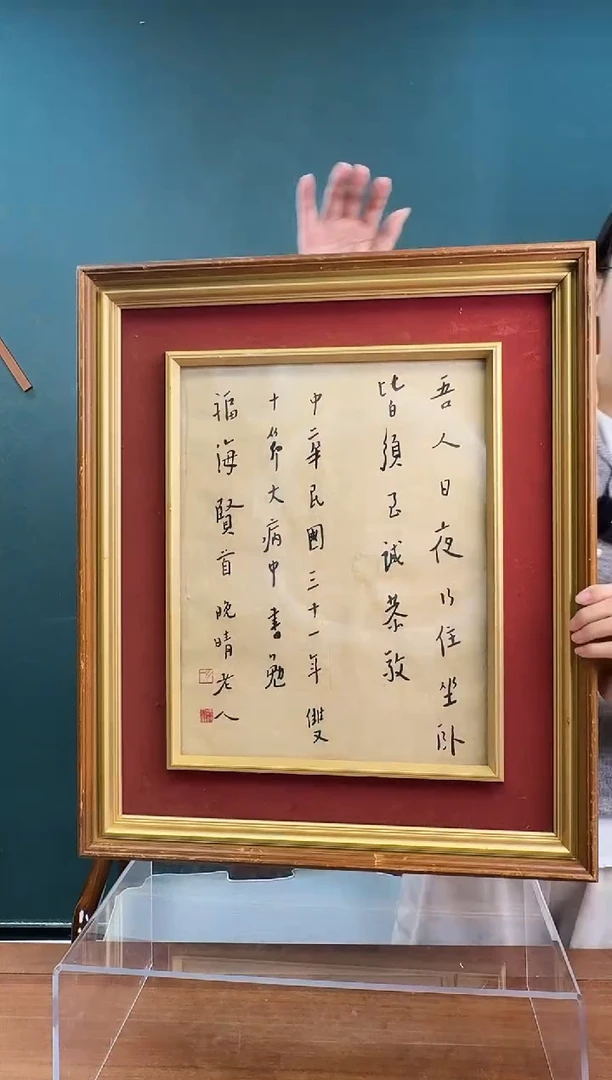 吾人日夜行住坐臥
皆須至誠恭敬
中華民國三十一年雙
十節大病中書勉
福海賢首晚晴老人